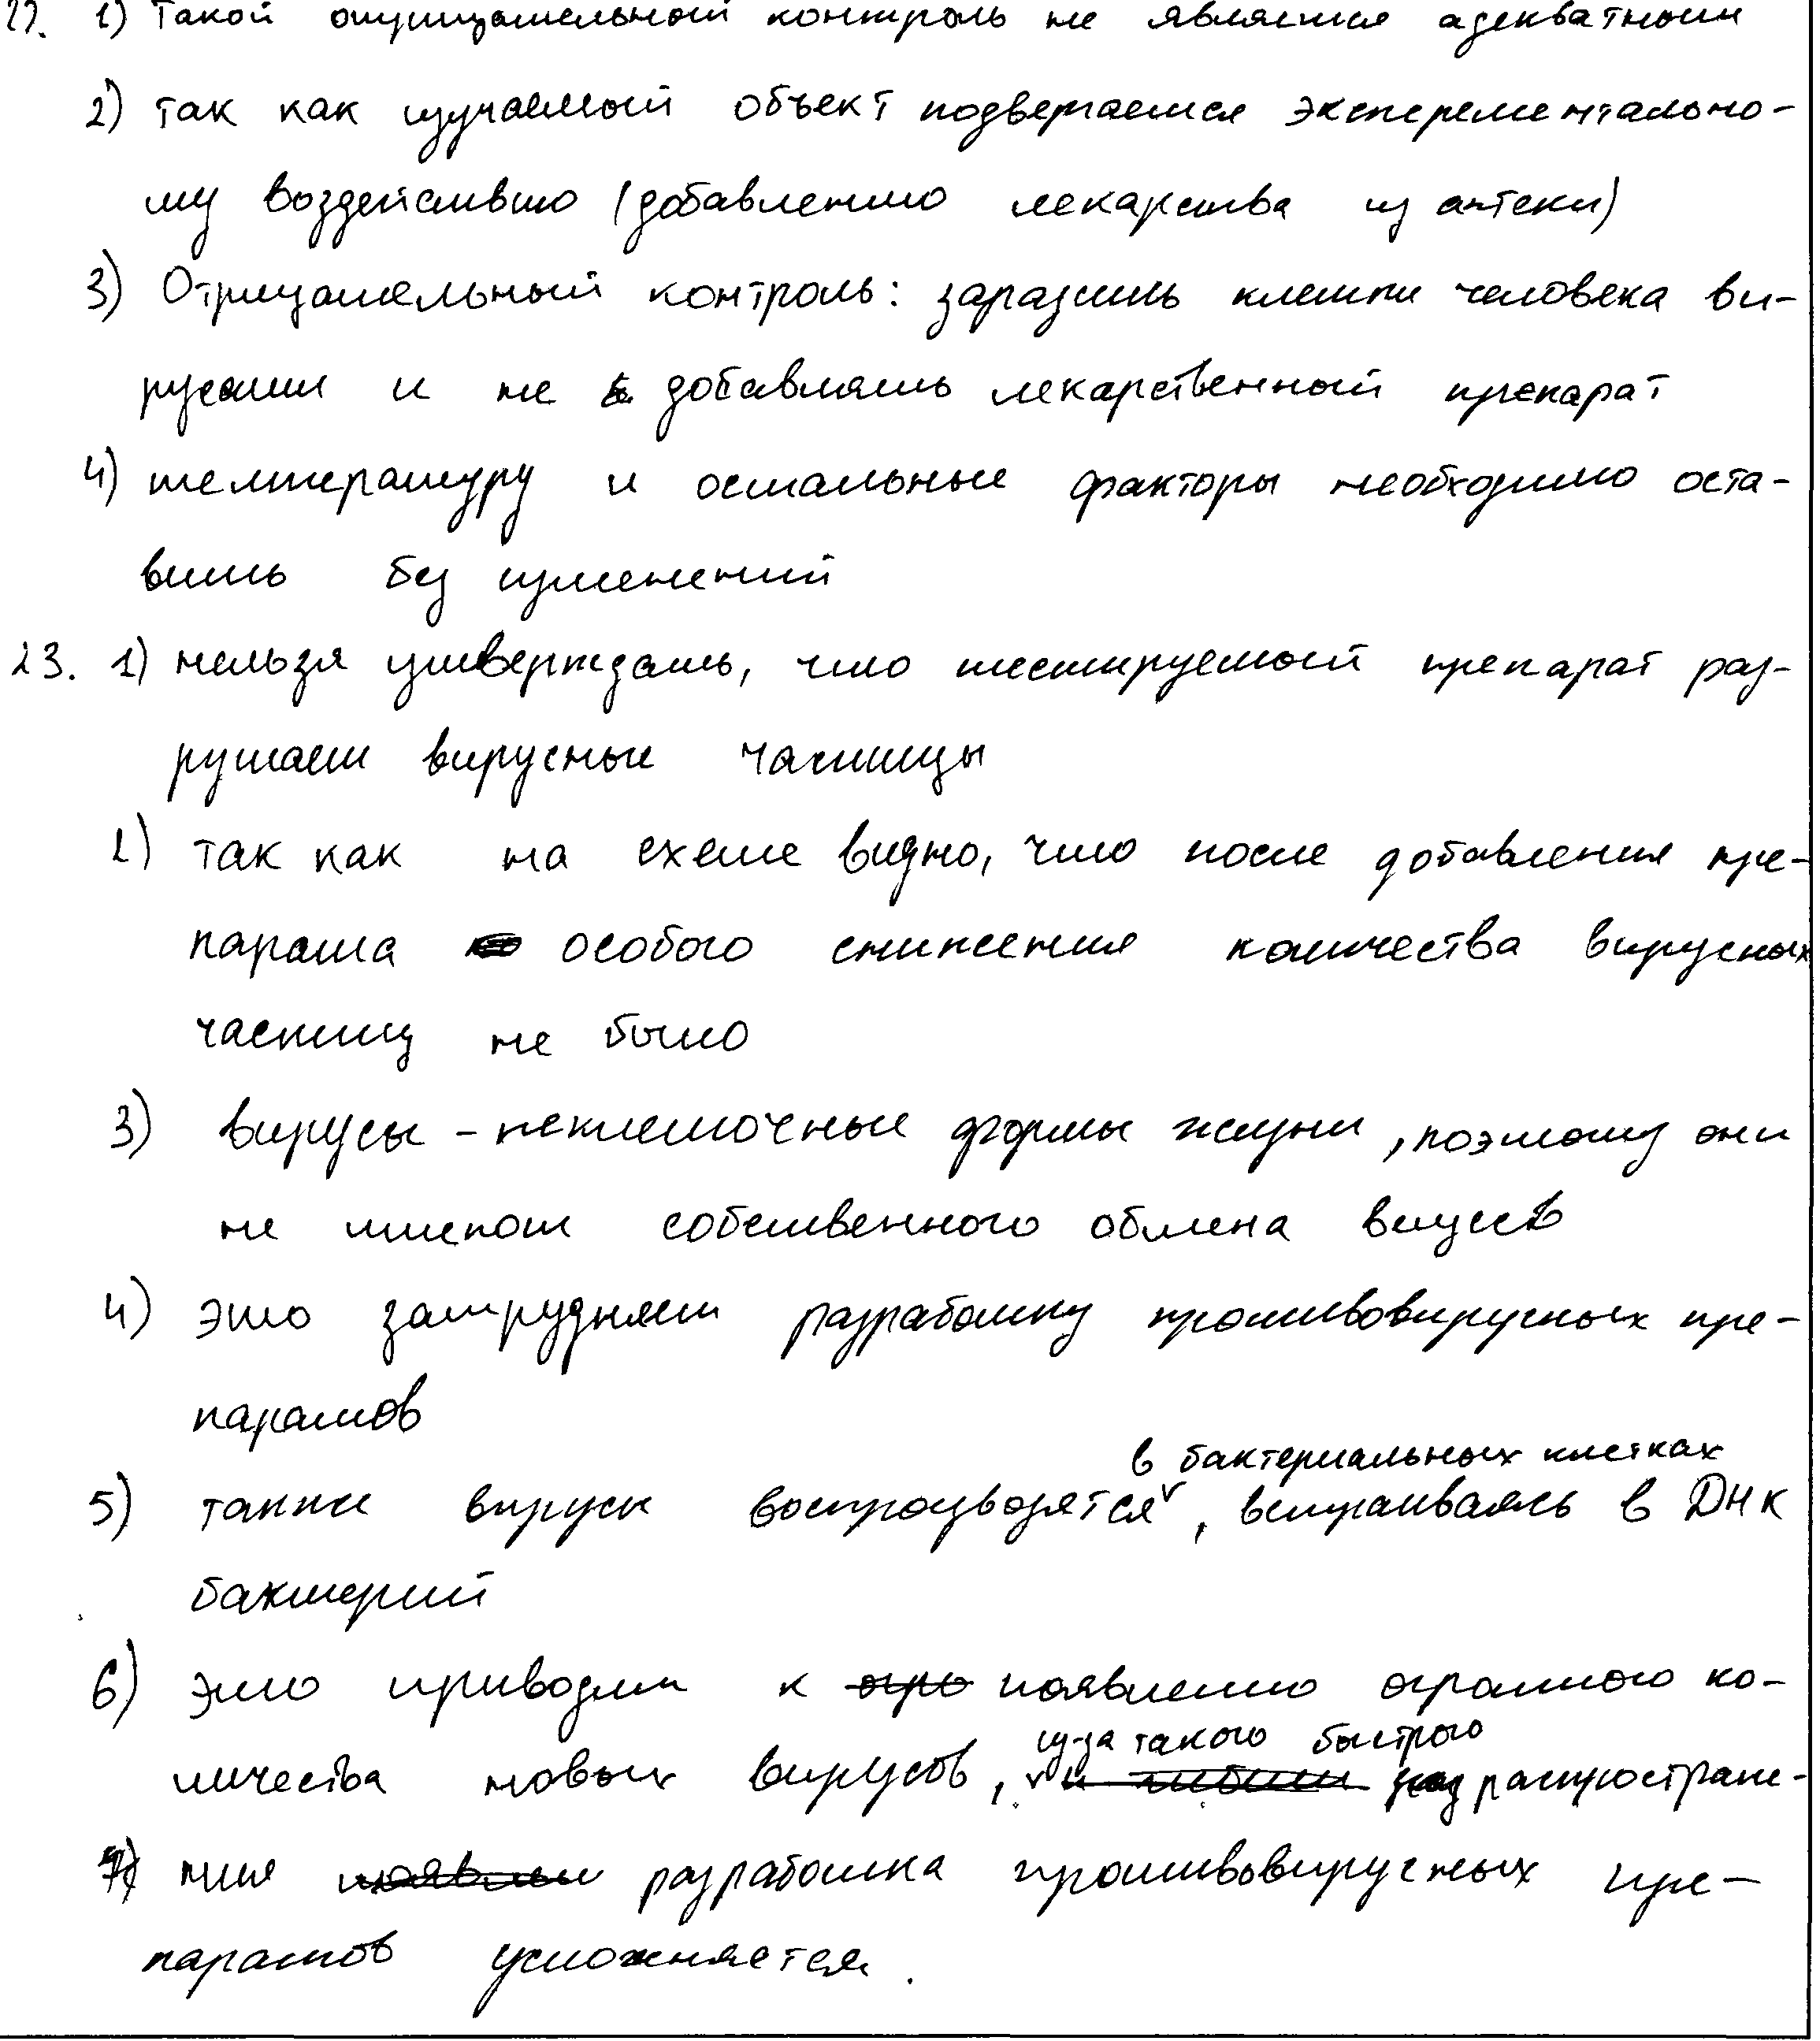 22. 1) Такой отрицательный контроль не является адекватным
2) так как изучаемый объект подвергается эксперементально-
му воздействию (добавлению лекарства из аптеки)
3) Отрицательный контроль: заразить клетки человека ви-
русами и не добавлять лекарственный препарат
4) температуру и остальные факторы необходимо оста-
вить без изменений
23. 1) нельзя утверждать, что тестируемый препарат раз-
рушает вирусные частицы
2) так как на схеме видно, что после добавления пре-
парата особого снижения количества вирусных
частиц не было
3) вирусы - неклеточные формы жизни, поэтому они
не имеют собственного обмена веществ
4) это затрудняет разработку противовирусных пре-
паратов
в бактериальных клетках
5) также вирусы воспроизводятся, встраиваясь в ДНК
бактерий
6) это приводит к появлению огромного ко-
из-за такого быстрого
личества новых вирусов, распростране-
ния разработка противовирусных пре-
паратов усложняется.